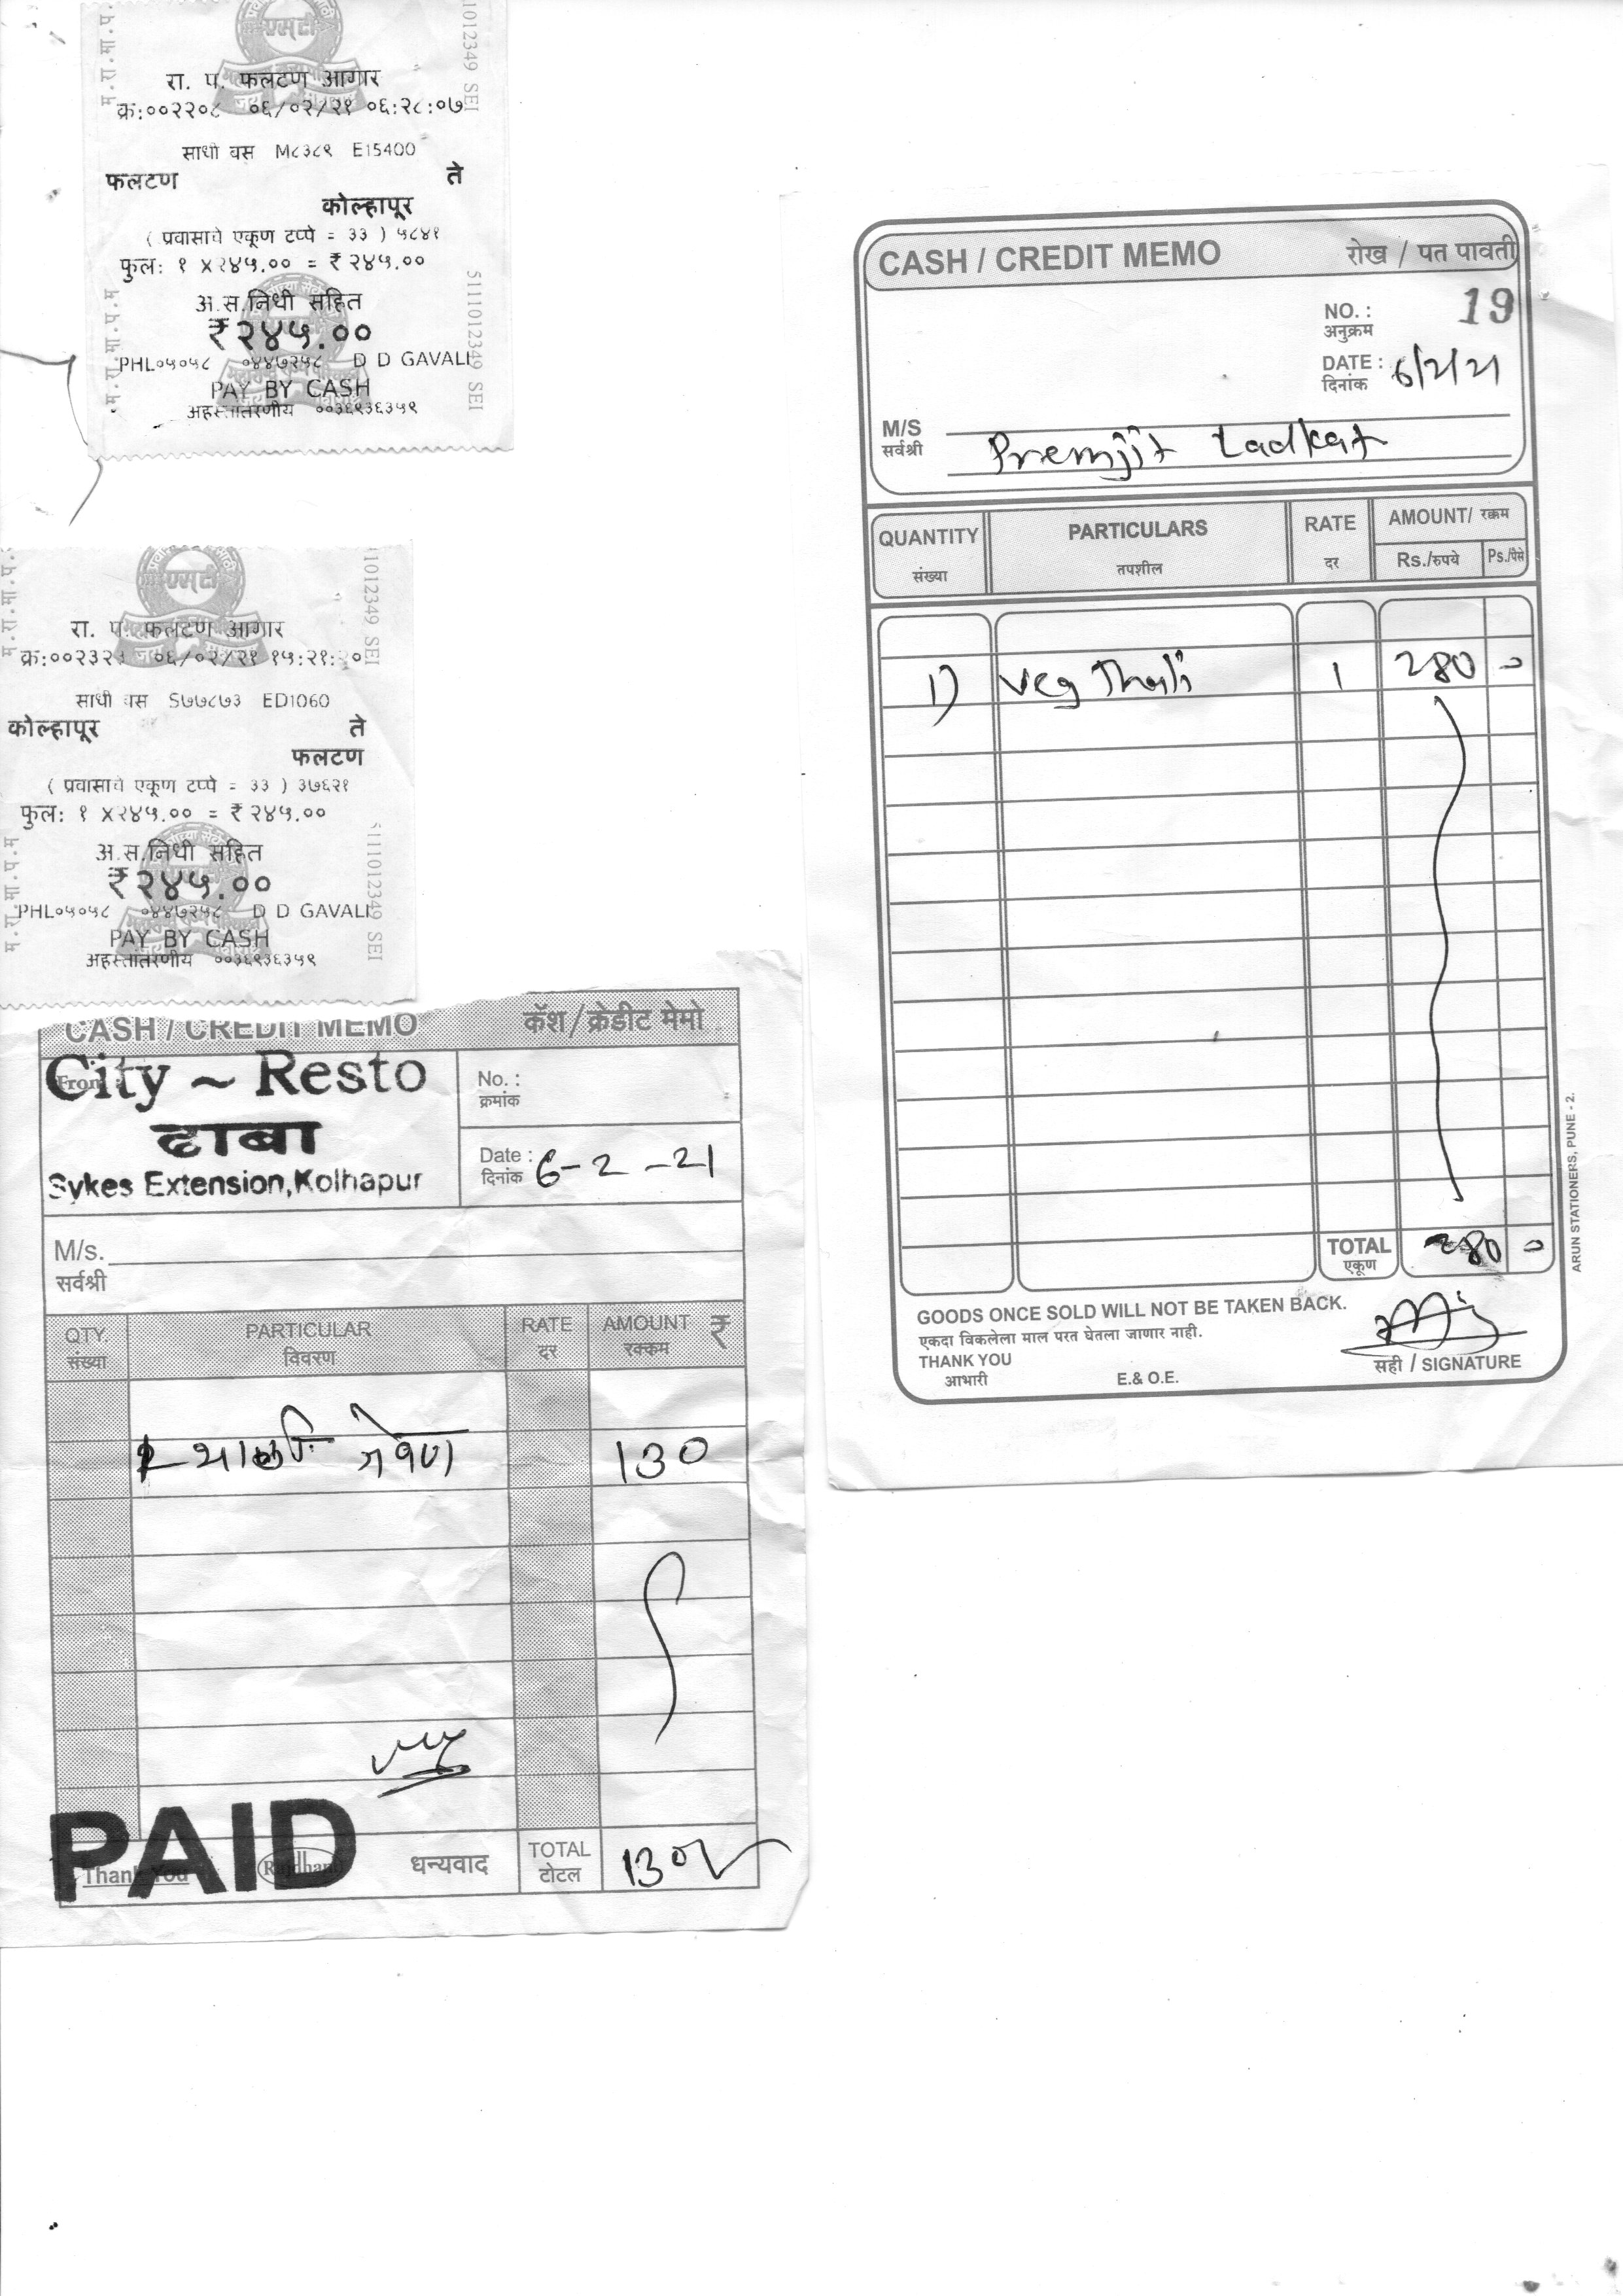 रा. प. फलटण आगार
क्र:००२२०८ ०६/०२/२१ ०६:२८:०७
साधी बस M८३८९ E15400
फलटण ते
कोल्हापूर
( प्रवासाचे एकूण टप्पे = ३३ ) ५८४१
फुल: १ X२४५.०० = ₹ २४५.००
अ.स.निधी सहित
₹२४५.००
PHL०५०५८ ०४४७२५८ D D GAVALI
PAY BY CASH
अहस्तांतरणीय ००३६९३६३५९
1012349 SEI
5111012349 SEI
म.रा.मा.प.म
रा. प. फलटण आगार
क्र:००२३२ ०६/०२/२१ १५:२१:२०
साधी बस S७७८७३ ED1060
कोल्हापूर ते
फलटण
( प्रवासाचे एकूण टप्पे = ३३ ) ३७६२१
फुल: १ X२४५.०० = ₹ २४५.००
अ.स.निधी सहित
₹२४५.००
PHL०५०५८ ०४४७२५८ D D GAVALI
PAY BY CASH
अहस्तांतरणीय ००३६९३६३५९
1012349 SEI
5111012349 SEI
म.रा.मा.प.म
CASH / CREDIT MEMO कॅश/क्रेडीट मेमो
From :
City ~ Resto
ढाबा
Sykes Extension,Kolhapur
No. :
क्रमांक
Date : 6-2-21
दिनांक
M/s.
सर्वश्री
QTY. PARTICULAR RATE AMOUNT ₹
संख्या विवरण दर रक्कम
130
PAID
Thank You Rajdhani धन्यवाद
TOTAL 130/-
टोटल
CASH / CREDIT MEMO रोख / पत पावती
NO. : 19
अनुक्रम
DATE : 6/2/21
दिनांक
M/S Premjit Ladkat
सर्वश्री
QUANTITY PARTICULARS RATE AMOUNT/ रक्कम
संख्या तपशील दर Rs./रुपये Ps./पैसे
1) Veg Thali 1 280 =
TOTAL 280 =
एकूण
GOODS ONCE SOLD WILL NOT BE TAKEN BACK.
एकदा विकलेला माल परत घेतला जाणार नाही.
THANK YOU
आभारी E.& O.E. सही / SIGNATURE
ARUN STATIONERS, PUNE - 2.